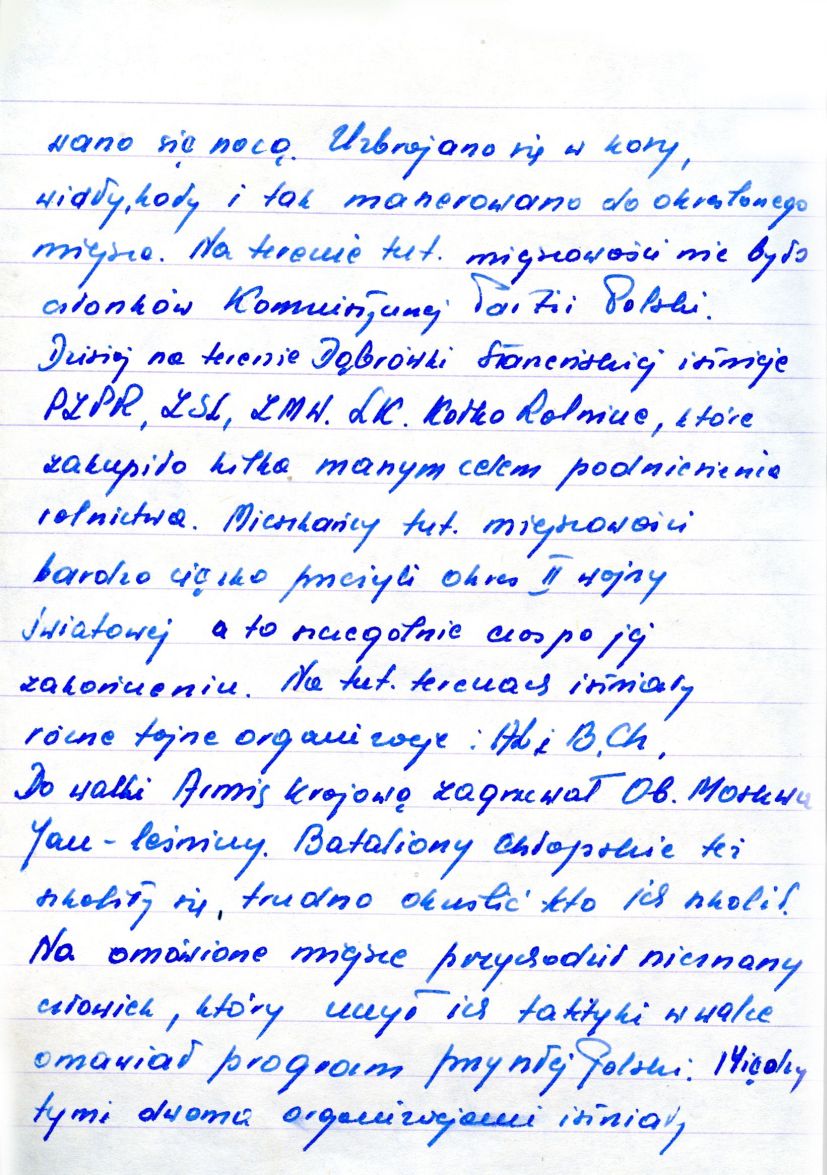 wano się nocą. Uzbrajano się w kosy,
widły, koły i tak maszerowano do określonego
miejsca. Na terenie tut. miejscowości nie było
członków Komunistycznej Partii Polski.
Dzisiaj na terenie Dąbrówki Starzeńskiej istnieje
PZPR, ZSL, ZMW. LK. Kółko Rolnicze, które
zakupiło kilka maszyn celem podniesienia
rolnictwa. Mieszkańcy tut. miejscowości
bardzo ciężko przeżyli okres II wojny
światowej a to szczególnie czas po jej
zakończeniu. Na tut. terenach istniały
różne tajne organizacje: AK i B.Ch,
Do walki Armię Krajową zagrzewał Ob. Moskwa
Jan - leśniczy. Bataliony Chłopskie też
szkoliły się, trudno określić kto ich szkolił.
Na omówione miejsce przychodził nieznany
człowiek, który uczył ich taktyki w walce
omawiał program przyszłej Polski. Między
tymi dwoma organizacjami istniały